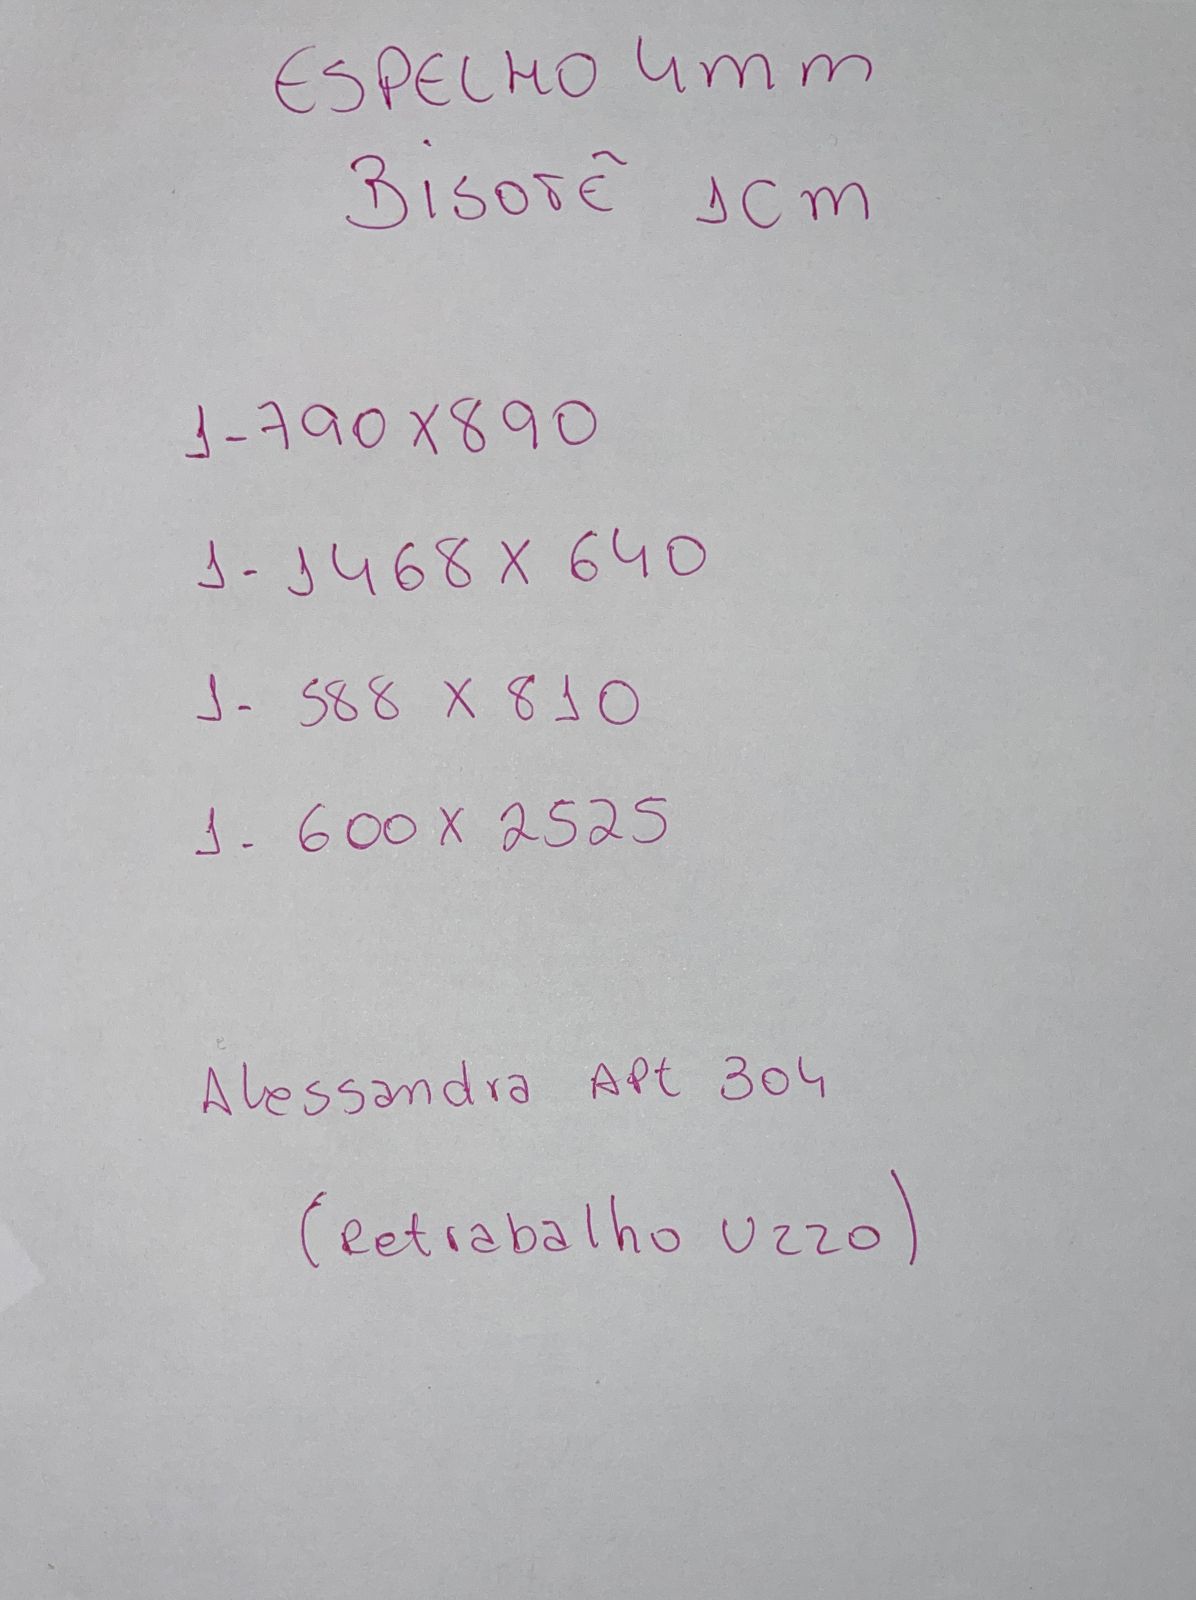 ESPELHO 4mm
BisoTÊ 1Cm
1-790X890
1-1468 X 640
1- 588 X 810
1- 600 X 2525
Alessandra APt 304
(Retrabalho Uzzo)